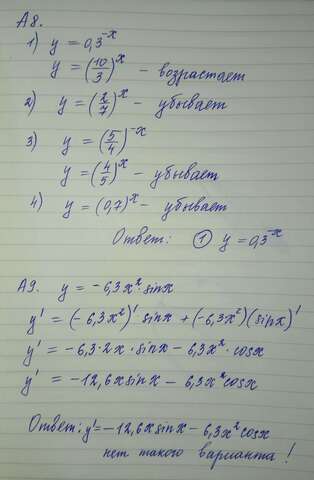 А8.
1) y = 0,3^{-x}
y = (10/3)^x - возрастает
2) y = (2/7)^x - убывает
3) y = (5/4)^{-x}
y = (4/5)^x - убывает
4) y = (0,7)^x - убывает
Ответ: ① y = 0,3^{-x}
А9. y = -6,3x² sinx
y' = (-6,3x²)' sinx + (-6,3x²)(sinx)'
y' = -6,3·2x · sinx - 6,3x² · cosx
y' = -12,6x sinx - 6,3x² cosx
Ответ: y' = -12,6x sinx - 6,3x² cosx
нет такого варианта!